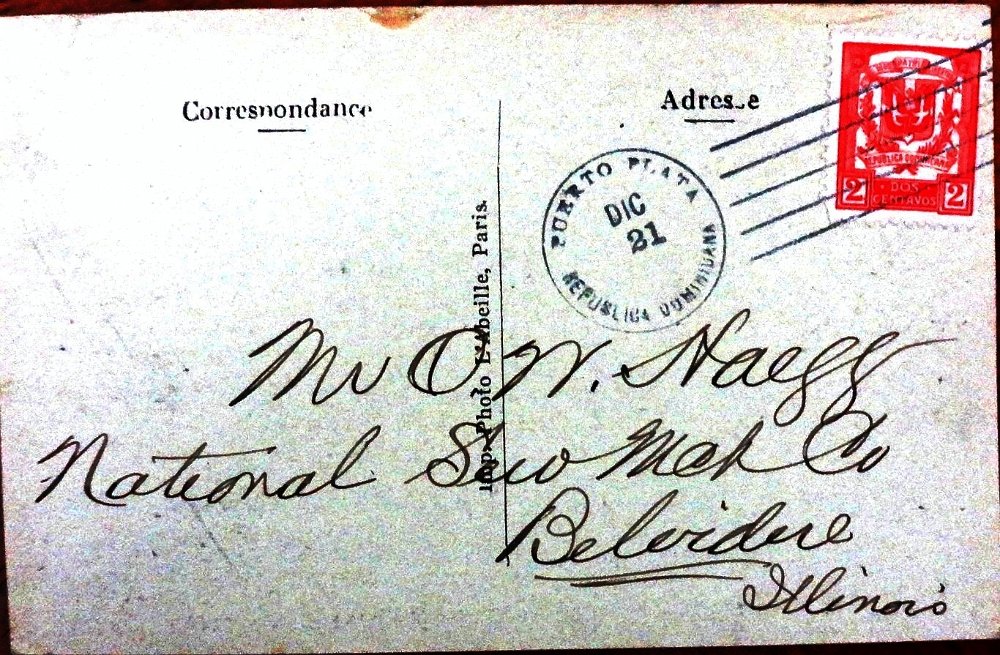 Correspondance
Adresse
PUERTO PLATA
DIC
21
REPUBLICA DOMINICANA
REPUBLICA DOMINICANA
2 DOS CENTAVOS 2
Imp. Photo L'Abeille, Paris.
Mr O. W. Haegg
National Sew Mch Co
Belvidere
Illinois